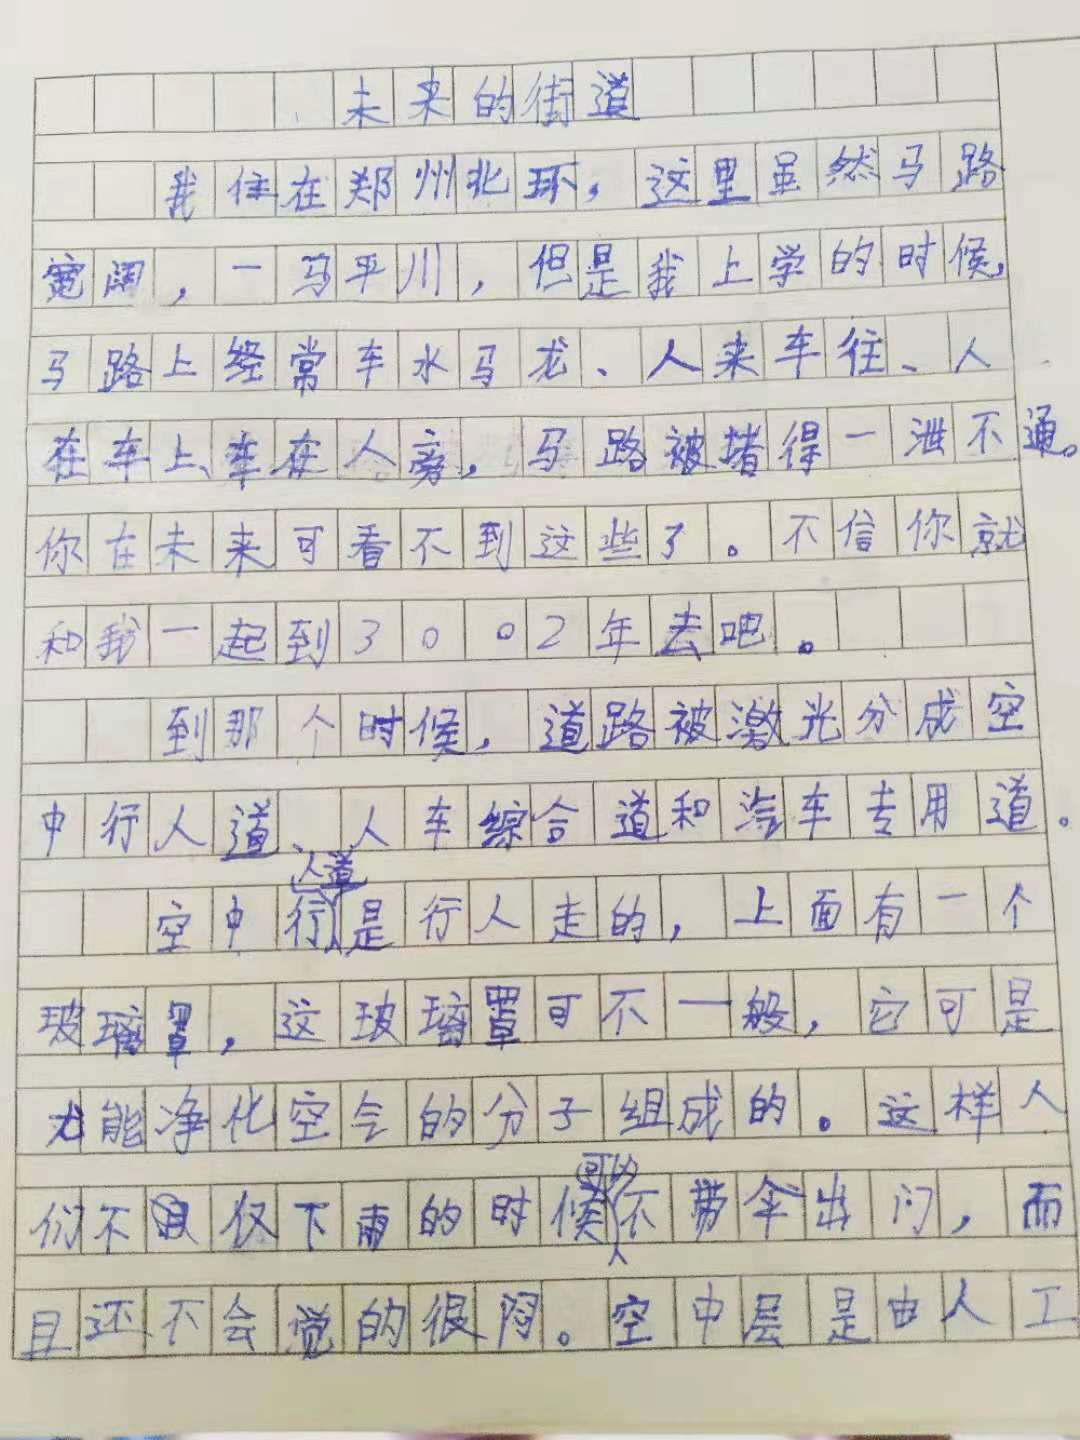 未来的街道
我住在郑州北环，这里虽然马路
宽阔，一马平川，但是我上学的时候，
马路上经常车水马龙、人来车往、人
在车上、车在人旁，马路被堵得一泄不通。
你在未来可看不到这些了。不信你就
和我一起到3002年去吧。
到那个时候，道路被激光分成空
中行人道、人车综合道和汽车专用道。
空中行人道是行人走的，上面有一个
玻璃罩，这玻璃罩可不一般，它可是
能净化空气的分子组成的。这样人
们不仅下雨的时候可以不带伞出门，而
且还不会觉的很闷。空中层是由人工